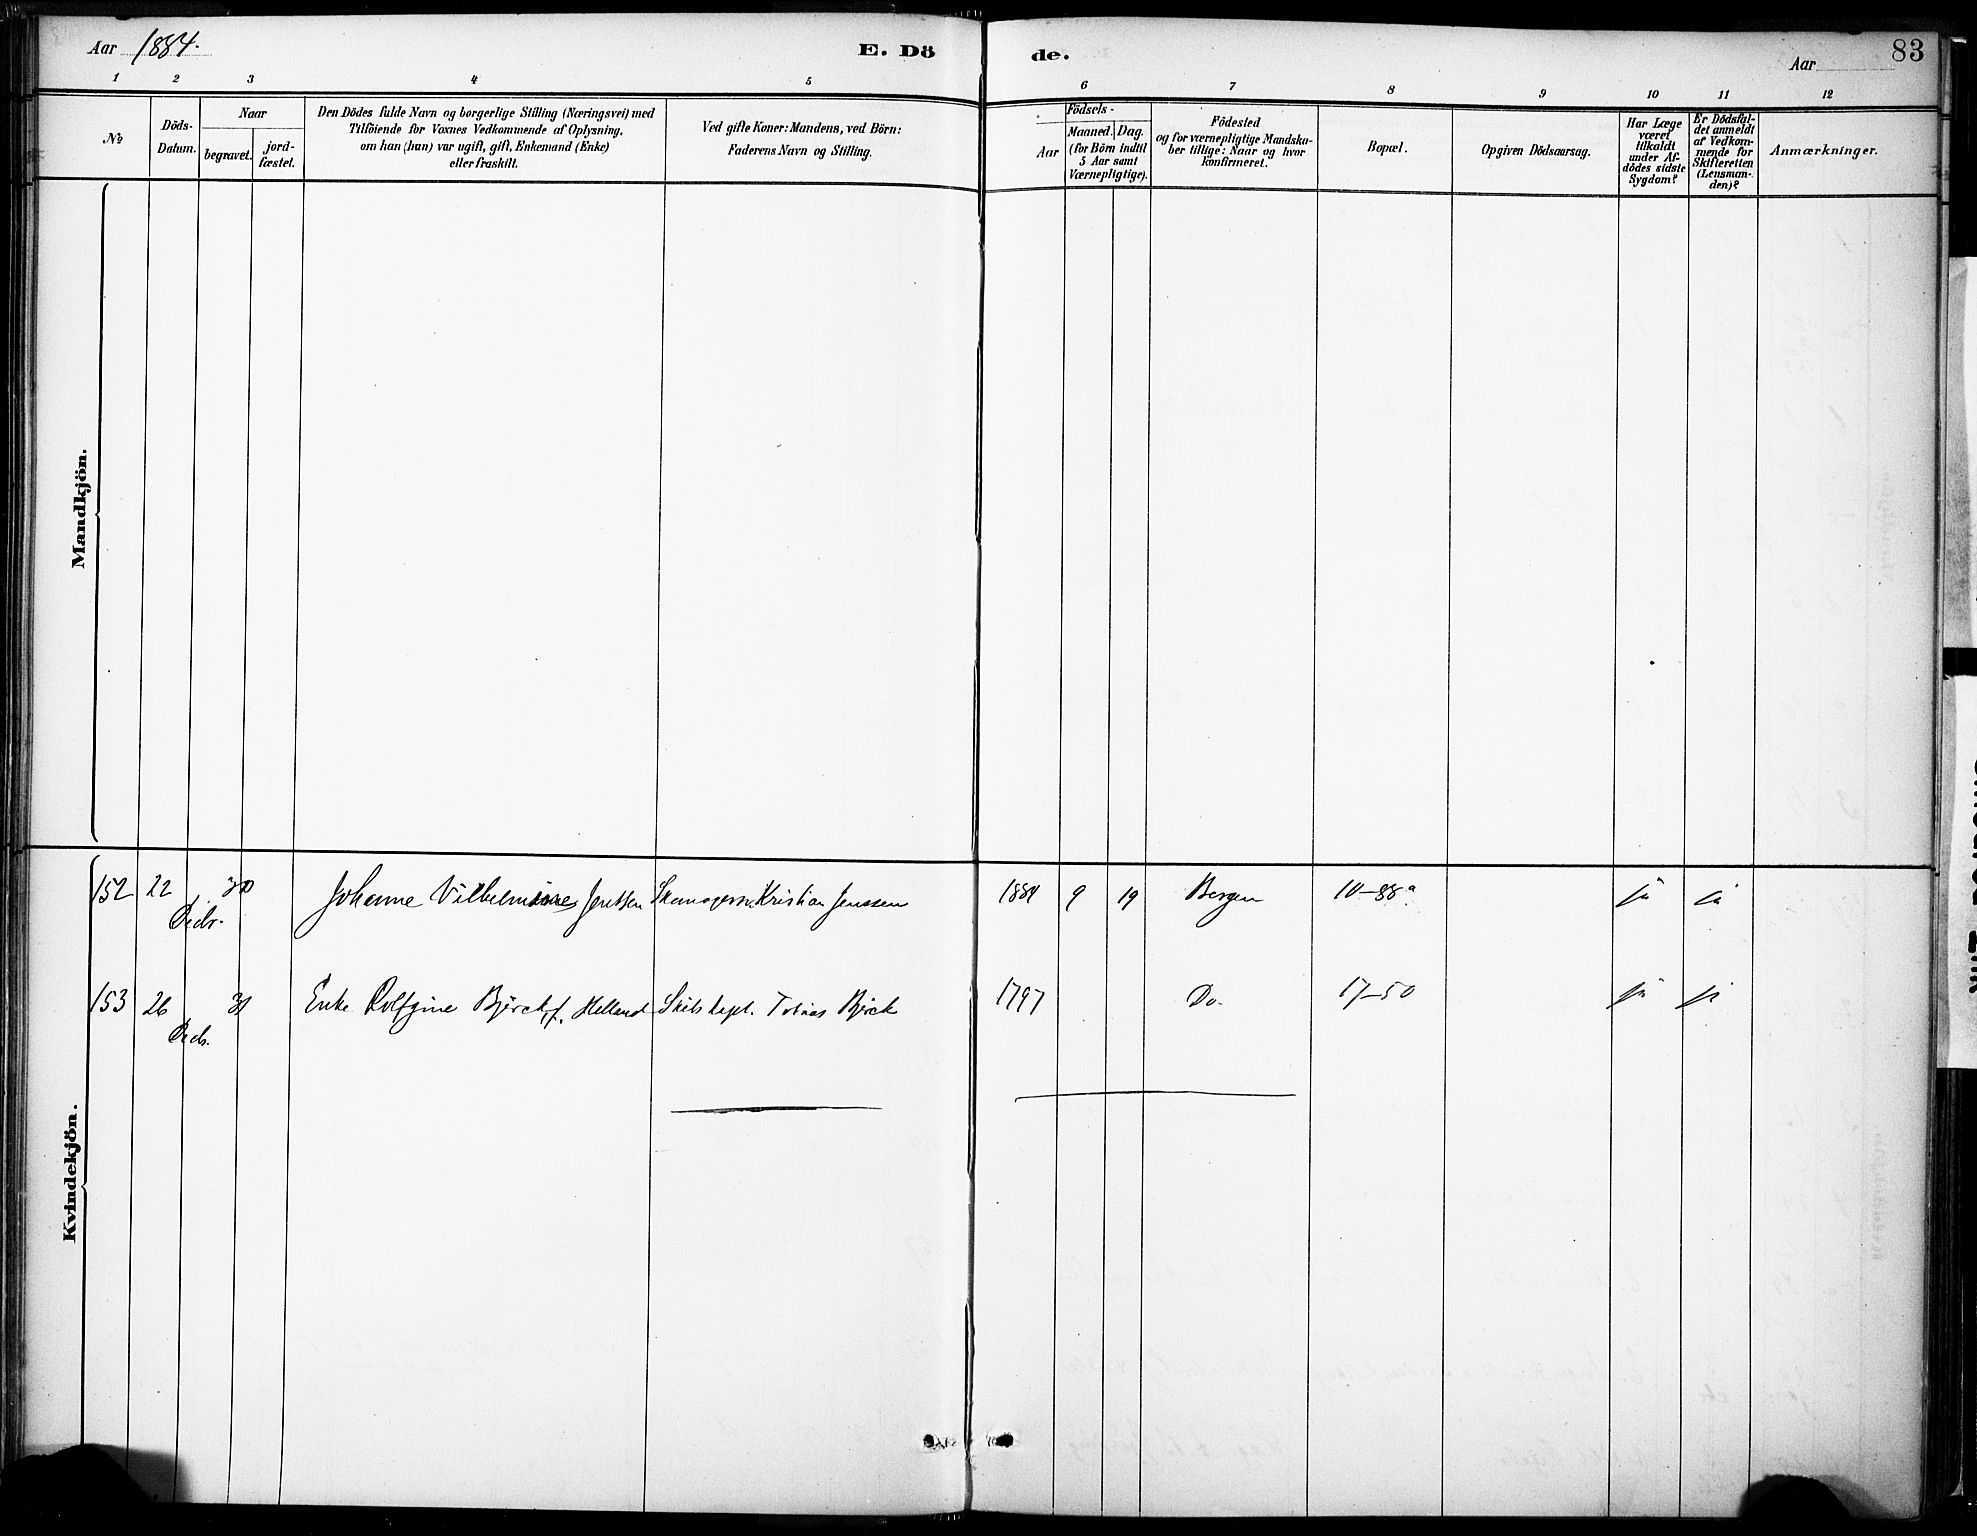 Aar 1884.
E. Dö
de.
Aar
83
1 2 3 4 5 6 7 8 9 10 11 12
№
Döds-
Datum.
Naar
begravet.
jord-
fæstet.
Den Dödes fulde Navn og borgerlige Stilling (Næringsvei) med
Tilföiende for Voxnes Vedkommende af Oplysning,
om han (hun) var ugift, gift, Enkemand (Enke)
eller fraskilt.
Ved gifte Koner: Mandens, ved Börn:
Faderens Navn og Stilling.
Födsels-
Aar
Maaned. Dag.
(for Börn indtil
5 Aar samt
Værnepligtige).
Födested
og for værnepligtige Mandska-
ber tillige: Naar og hvor
konfirmeret.
Bopæl.
Opgiven Dödsaarsag.
Har Læge
været
tilkaldt
under Af-
dödes sidste
Sygdom?
Er Dödsfal-
det anmeldt
af Vedkom-
mende for
Skifteretten
(Lensman-
den)?
Anmærkninger.
Mandkjön.
Kvindekjön.
152 22 30 Johanne Vilhelmine Jentsen Kristian Jenssen 1884 9 19 Bergen 10-88a ja ja
Decbr.
153 26 31 Enke Rolfgine Björck, f. Helland Skibskapt. Tobias Björck 1797 Do. 17-50 ja ja
Decb.